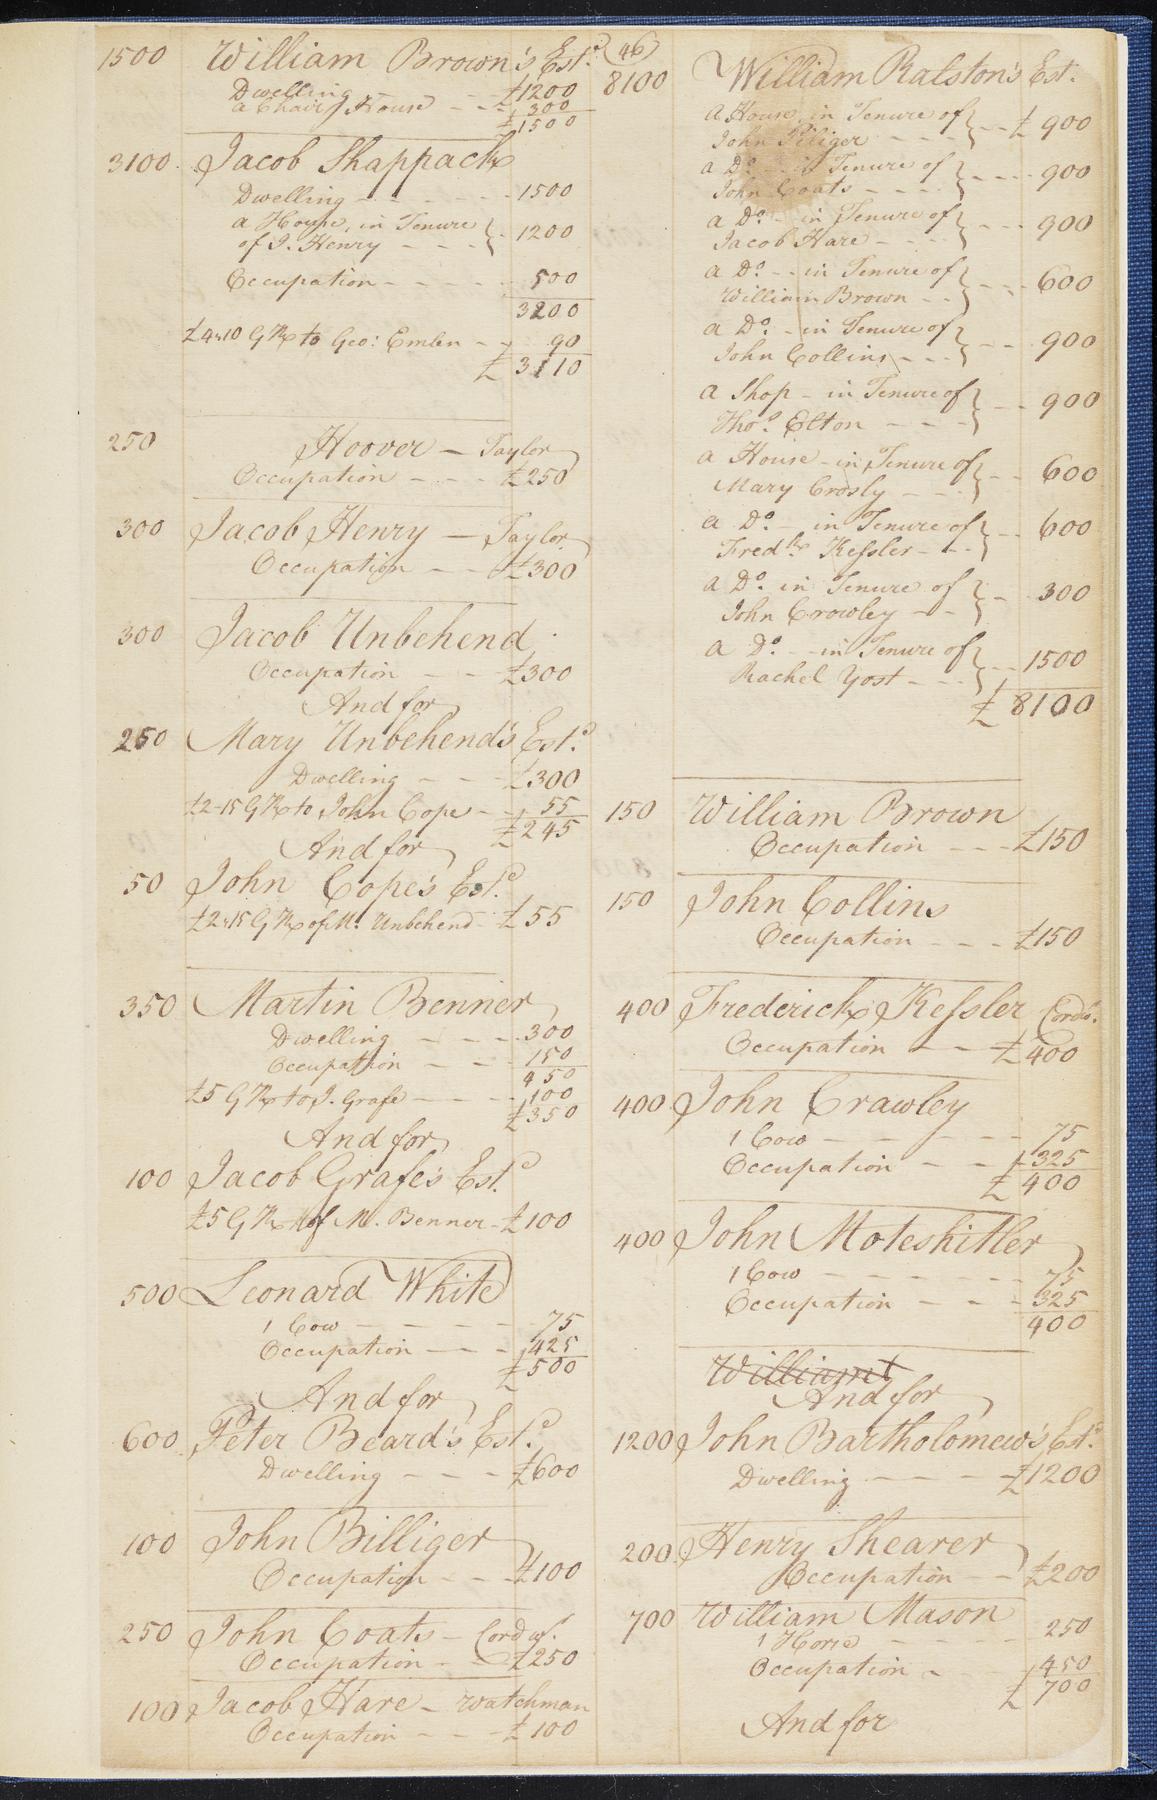 (46)
1500 William Brown's Est.
Dwelling - - £1200
a Chair House - - 300
£1500
3100 Jacob Shappack
Dwelling - - - 1500
a House, in Tenure
of J. Henry - - - } 1200
Occupation - - - 500
3200
£4.10 G R to Geo: Emlen - - 90
£3110
250 Hoover - Taylor
Occupation - - - £250
300 Jacob Henry - Taylor
Occupation - - £300
300 Jacob Unbehend
Occupation - - £300
And for
250 Mary Unbehend's Est.
Dwelling - - - £300
£2-15 G R to John Cope - - 55
£245
And for
50 John Cope's Est.
£2.15 G R of M. Unbehend - £55
350 Martin Benner
Dwelling - - - 300
Occupation - - 150
450
£5 G R to J. Grafe - - - 100
£350
And for
100 Jacob Grafe's Est.
£5 G R of M. Benner - £100
500 Leonard White
1 Cow - - - - 75
Occupation - - - 425
£500
And for
600 Peter Beard's Est.
Dwelling - - - £600
100 John Billiger
Occupation - - £100
250 John Coats - Cordwr.
Occupation - £250
100 Jacob Hare - Watchman
Occupation - - £100
8100 William Ralston's Est.
a House, in Tenure of
John Piliger - - - } - - £900
a Do. in Tenure of
John Coats - - - - } - - - 900
a Do. - in Tenure of
Jacob Hare - - - } - - - 900
a Do. - - in Tenure of
William Brown - - } - - - 600
a Do. - in Tenure of
John Collins - - - } - - - 900
a Shop - in Tenure of
Tho. Elton - - - } - - 900
a House - in Tenure of
Mary Crosly - - - } - - 600
a Do. - in Tenure of
Fredk. Kessler - - - } - - 600
a Do. in Tenure of
John Crowley - - - } - 300
a Do. - - in Tenure of
Rachel Yost - - - } - - 1500
£8100
150 William Brown
Occupation - - - £150
150 John Collins
Occupation - - - £150
400 Frederick Kessler Cordr.
Occupation - - £400
400 John Crawley
1 Cow - - - - - 75
Occupation - - 325
£400
400 John Moteshitler
1 Cow - - - - - 75
Occupation - - - 325
400
And for
1200 John Bartholomew's Est.
Dwelling - - - - £1200
200 Henry Shearer
Occupation - - £200
700 William Mason
1 Horse - - - - 250
Occupation - 450
£700
And for